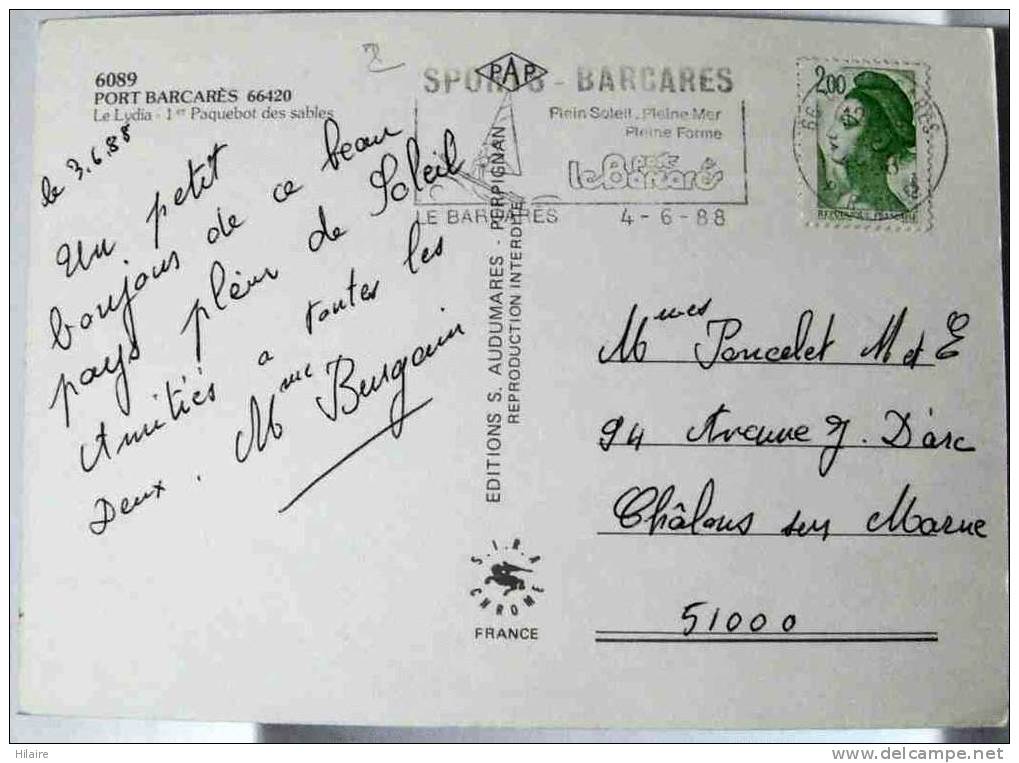 6089
PORT BARCARÈS 66420
Le Lydia - 1er Paquebot des sables
le 3.6.88
Un petit
bonjour de ce beau
pays plein de Soleil
Amitiés a toutes les
Deux. Mme Burgain
2
PAP
EDITIONS S. AUDUMARES - PERPIGNAN
REPRODUCTION INTERDITE
S.I.R.A
CHROME
FRANCE
SPORTS - BARCARES
Plein Soleil. Pleine Mer
Pleine Forme
port
le Barcarès
LE BARCARES 4-6-88
2,00
REPUBLIQUE FRANÇAISE
Mmes Poncelet M et E
94 Avenue J. D'arc
Châlons sur Marne
51000
Hilaire
www.delcampe.net